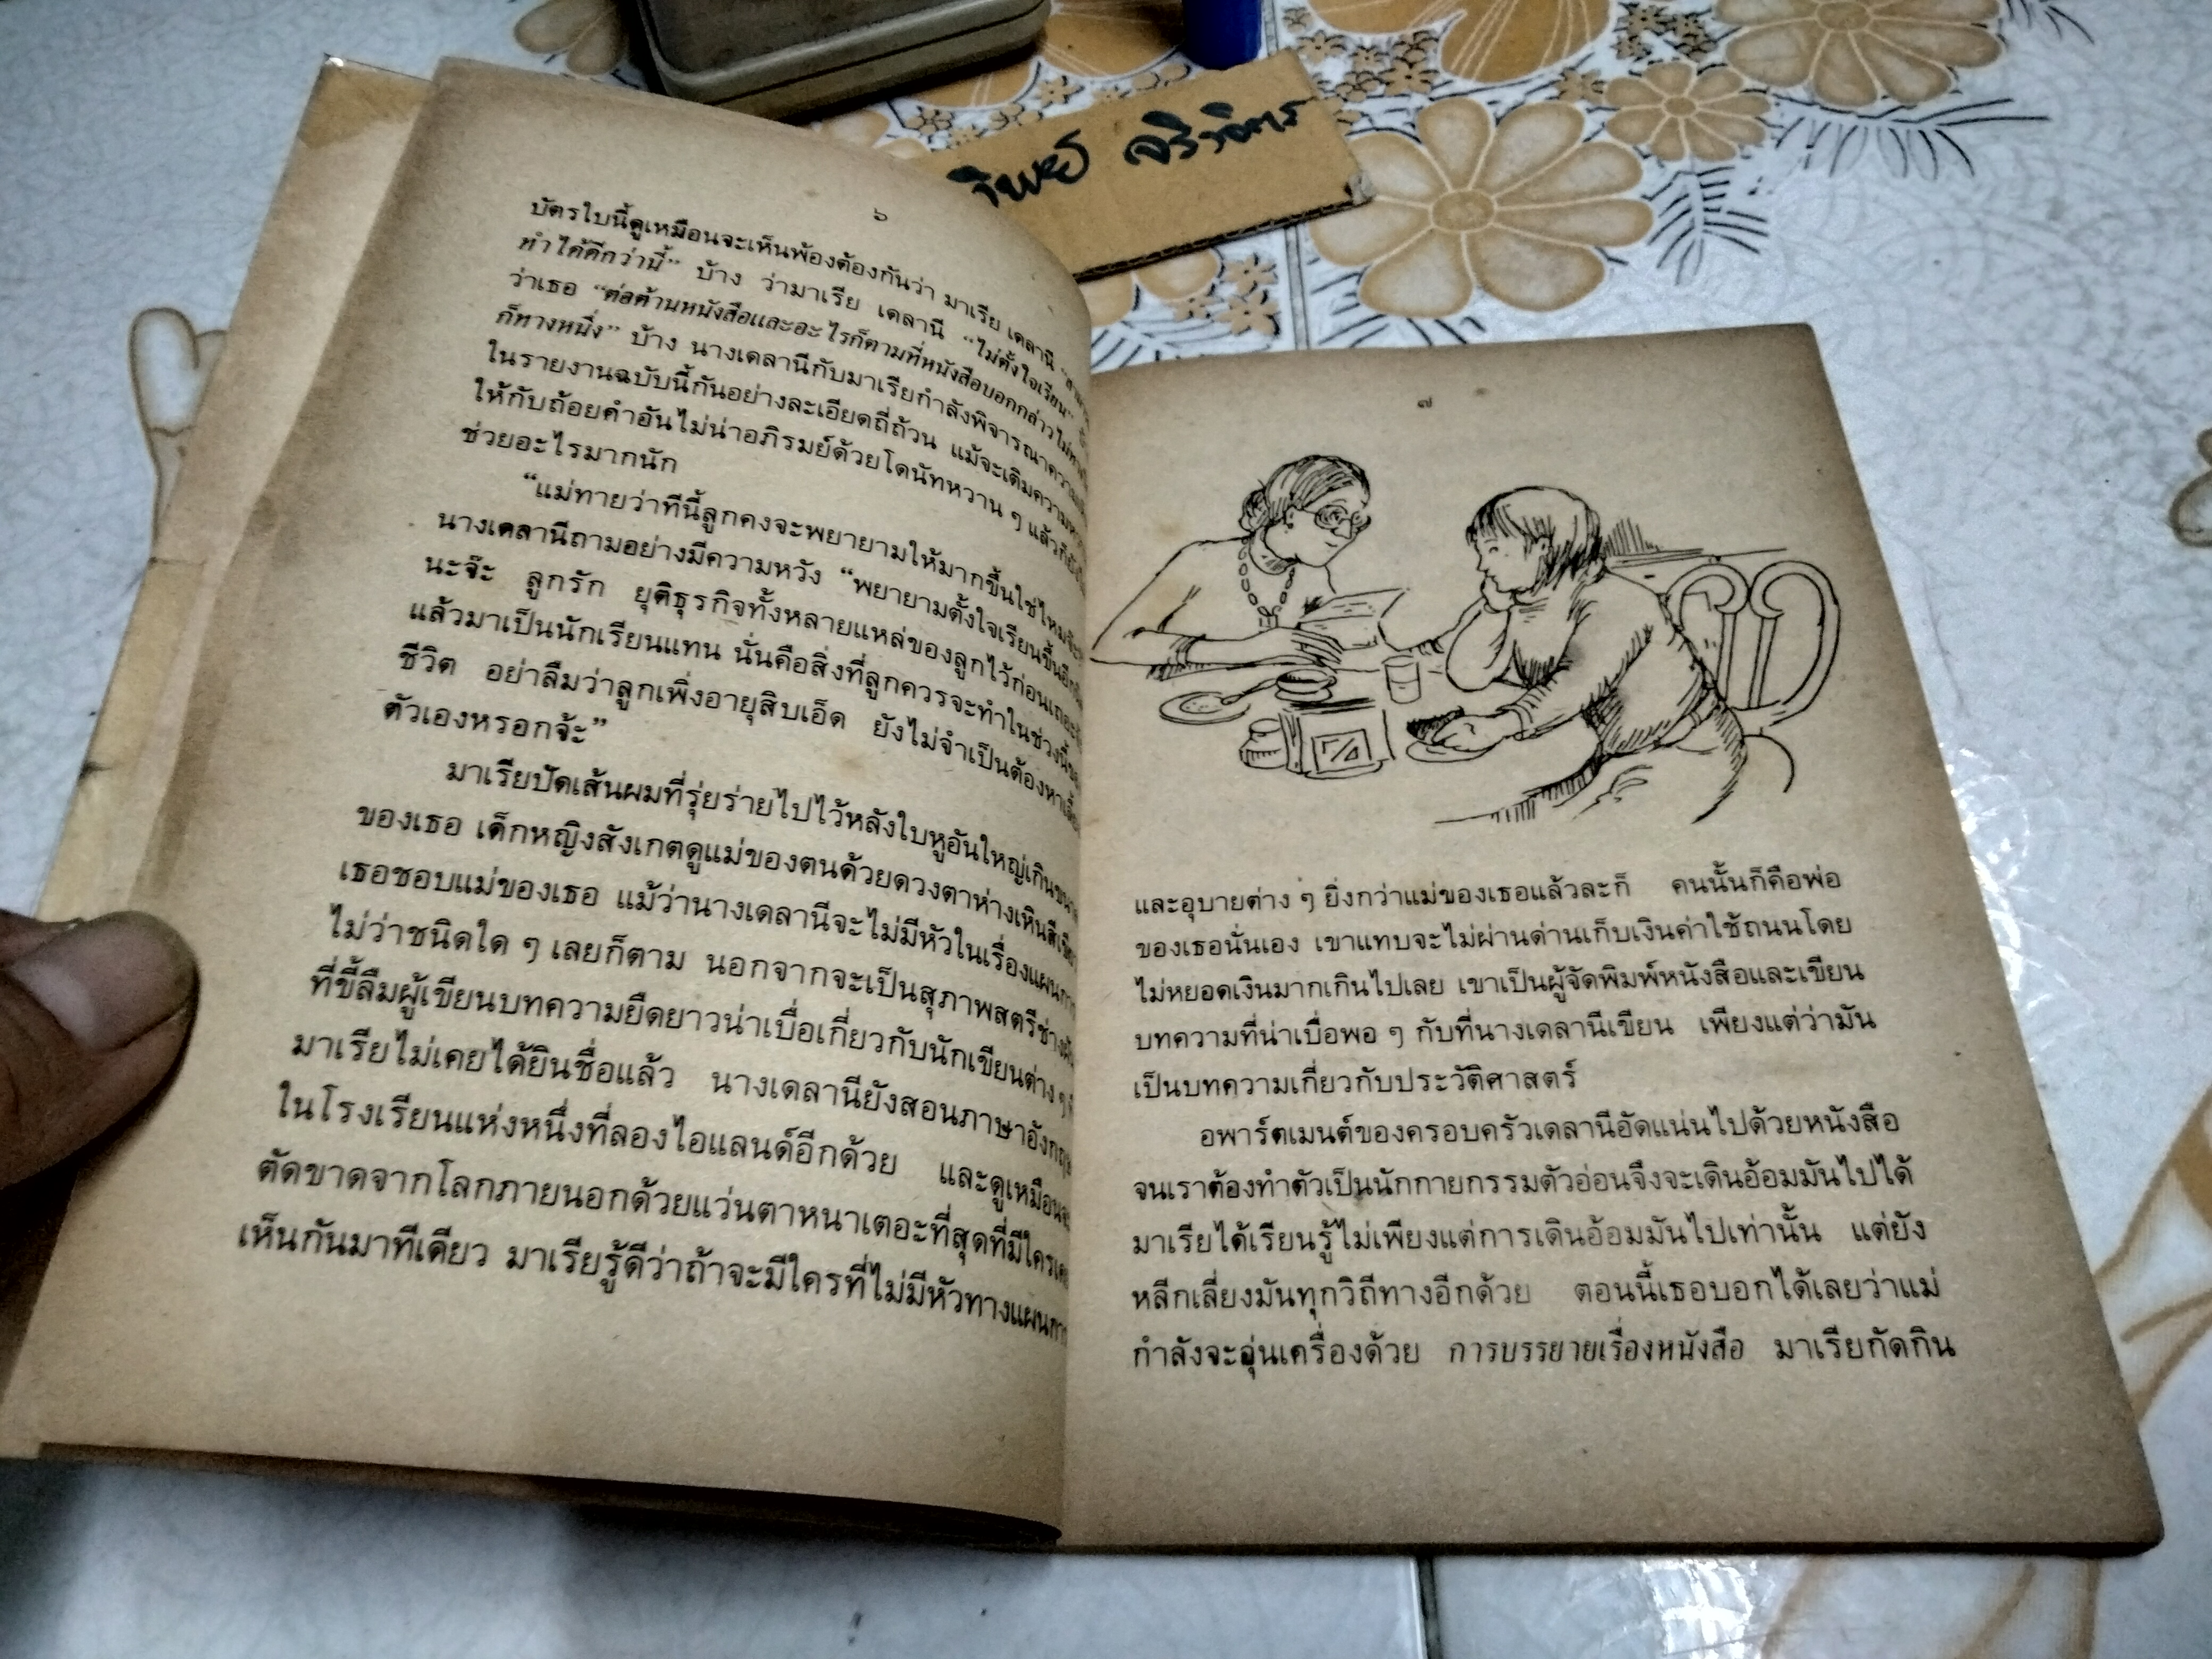 ๖
บัตรใบนี้ดูเหมือนจะเห็นพ้องต้องกันว่า มาเรีย เดลานี
ทำได้ดีกว่านี้” บ้าง ว่ามาเรีย เดลานี “ไม่ตั้งใจเรียน”
ว่าเธอ “ต่อต้านหนังสือและอะไรก็ตามที่หนังสือบอกกล่าวไม่ทาง
ก็ทางหนึ่ง” บ้าง นางเดลานีกับมาเรียกำลังพิจารณาความ
ในรายงานฉบับนี้กันอย่างละเอียดถี่ถ้วน แม้จะเติมความหวาน
ให้กับถ้อยคำอันไม่น่าอภิรมย์ด้วยโดนัทหวาน ๆ แล้วก็
ช่วยอะไรมากนัก
“แม่ทายว่าทีนี้ลูกคงจะพยายามให้มากขึ้นใช่ไหมจ๊ะ
นางเดลานีถามอย่างมีความหวัง “พยายามตั้งใจเรียนขึ้นอีก
นะจ๊ะ ลูกรัก ยุติธุรกิจทั้งหลายแหล่ของลูกไว้ก่อนเถอะ
แล้วมาเป็นนักเรียนแทน นั่นคือสิ่งที่ลูกควรจะทำในช่วงนี้ของ
ชีวิต อย่าลืมว่าลูกเพิ่งอายุสิบเอ็ด ยังไม่จำเป็นต้องหาเลี้ยง
ตัวเองหรอกจ้ะ”
มาเรียปัดเส้นผมที่รุ่ยร่ายไปไว้หลังใบหูอันใหญ่เกินขนาด
ของเธอ เด็กหญิงสังเกตดูแม่ของตนด้วยดวงตาห่างเหินสีเขียว
เธอชอบแม่ของเธอ แม้ว่านางเดลานีจะไม่มีหัวในเรื่องแผนการ
ไม่ว่าชนิดใด ๆ เลยก็ตาม นอกจากจะเป็นสุภาพสตรีช่างฝัน
ที่ขี้ลืมผู้เขียนบทความยืดยาวน่าเบื่อเกี่ยวกับนักเขียนต่าง ๆ ที่
มาเรียไม่เคยได้ยินชื่อแล้ว นางเดลานียังสอนภาษาอังกฤษ
ในโรงเรียนแห่งหนึ่งที่ลองไอแลนด์อีกด้วย และดูเหมือนจะ
ตัดขาดจากโลกภายนอกด้วยแว่นตาหนาเตอะที่สุดที่มีใครเคย
เห็นกันมาทีเดียว มาเรียรู้ดีว่าถ้าจะมีใครที่ไม่มีหัวทางแผนการ
๗
และอุบายต่าง ๆ ยิ่งกว่าแม่ของเธอแล้วละก็ คนนั้นก็คือพ่อ
ของเธอนั่นเอง เขาแทบจะไม่ผ่านด่านเก็บเงินค่าใช้ถนนโดย
ไม่หยอดเงินมากเกินไปเลย เขาเป็นผู้จัดพิมพ์หนังสือและเขียน
บทความที่น่าเบื่อพอ ๆ กับที่นางเดลานีเขียน เพียงแต่ว่ามัน
เป็นบทความเกี่ยวกับประวัติศาสตร์
อพาร์ตเมนต์ของครอบครัวเดลานีอัดแน่นไปด้วยหนังสือ
จนเราต้องทำตัวเป็นนักกายกรรมตัวอ่อนจึงจะเดินอ้อมมันไปได้
มาเรียได้เรียนรู้ไม่เพียงแต่การเดินอ้อมมันไปเท่านั้น แต่ยัง
หลีกเลี่ยงมันทุกวิถีทางอีกด้วย ตอนนี้เธอบอกได้เลยว่าแม่
กำลังจะอุ่นเครื่องด้วย การบรรยายเรื่องหนังสือ มาเรียกัดกิน